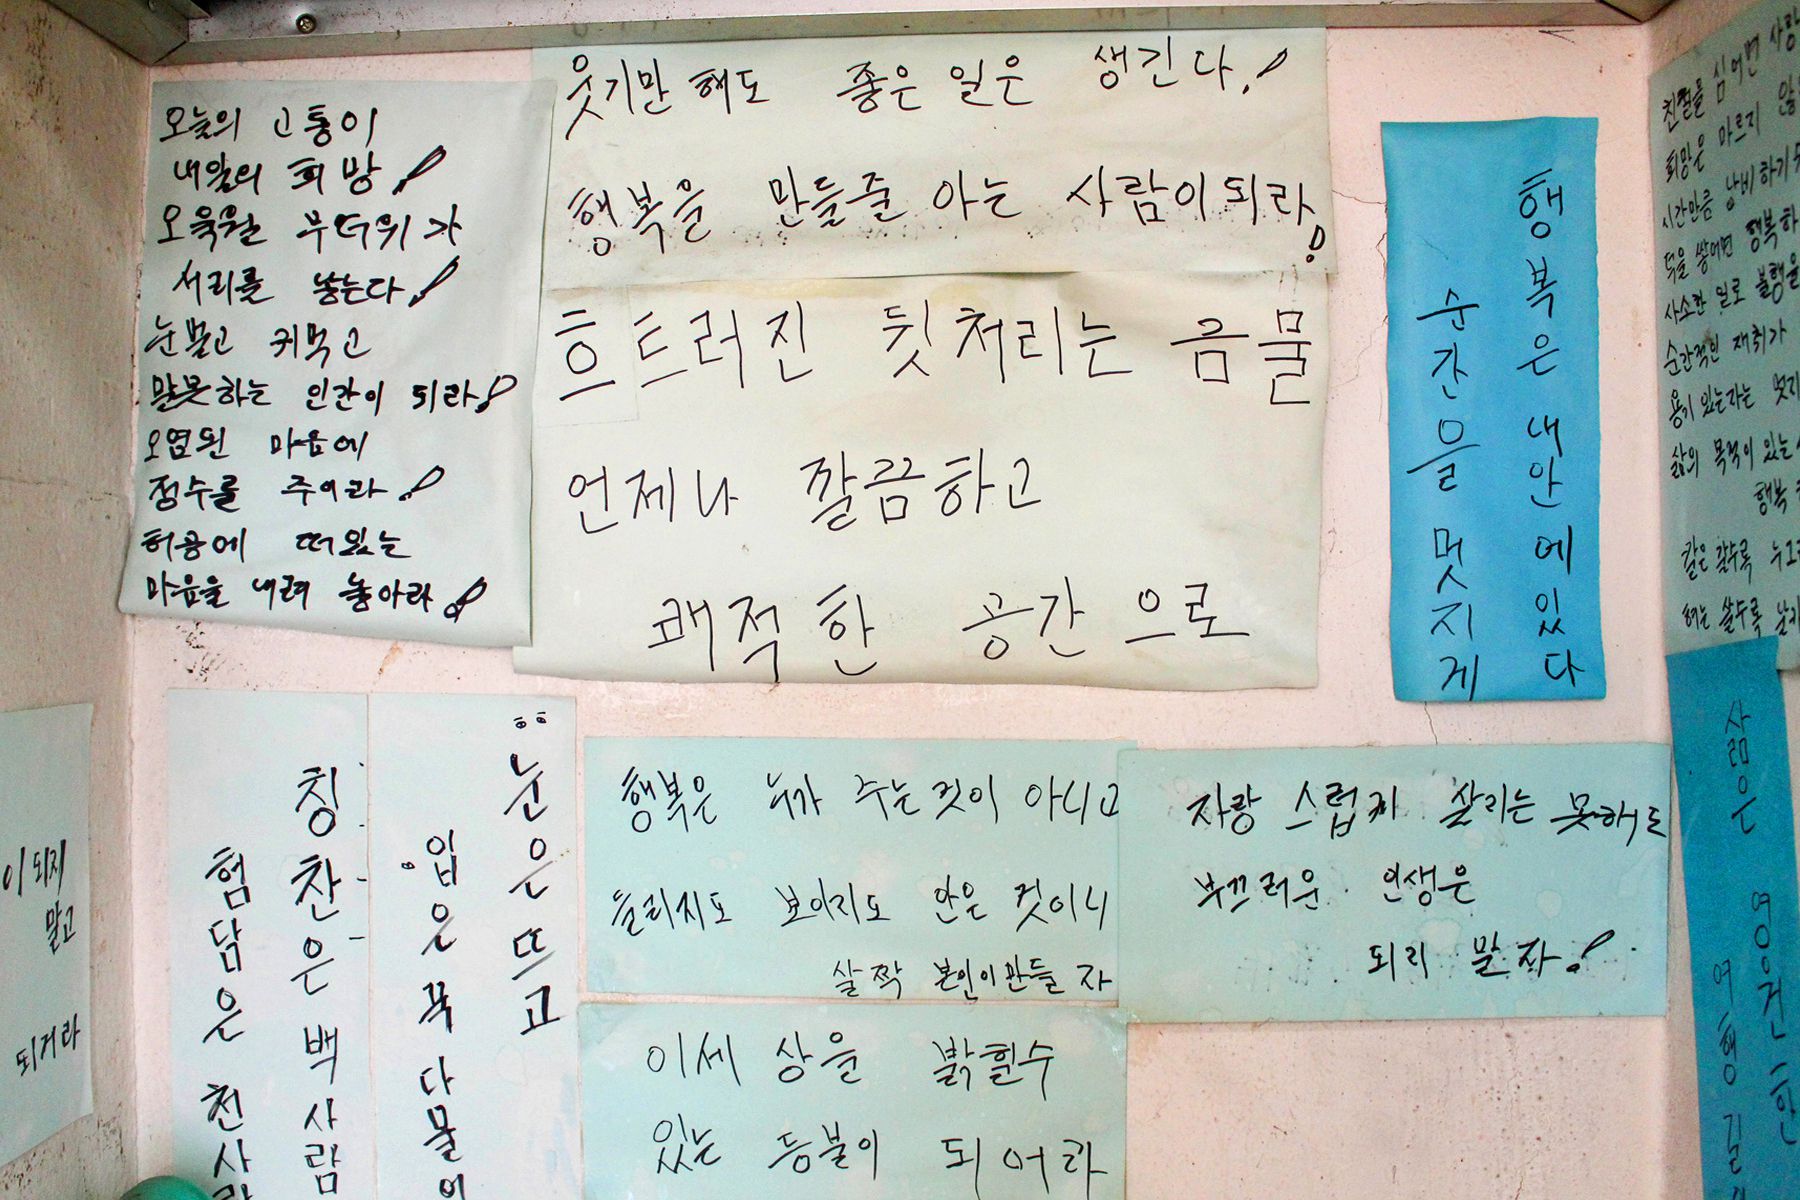 오늘의 고통이
내일의 희망!
오육월 무더위가
서리를 낳는다!
눈멀고 귀먹고
말못하는 인간이 되라!
오염된 마음에
정수를 주어라!
허공에 떠있는
마음을 내려 놓아라!
웃기만 해도 좋은 일은 생긴다!
행복을 만들줄 아는 사람이되라!
흐트러진 뒷처리는 금물
언제나 깔끔하고
쾌적한 공간으로
행복은 내안에있다
순간을 멋지게
친절을 심어면 사랑
희망은 마르지 않
시간만큼 낭비하기
덕을 쌓어면 행복하
사소한 일로 불행을
순간적인 재취가
용기 있는자는 멋지
삶의 목적이 있는
행복
칼은 갈수록
혀는 쓸수록 날카
삶은 영원한
여행길
이되지
말고
되거라
눈은뜨고
입은꼭다물어
칭찬은백사람
험담은 천사람
행복은 누가 주는것이 아니고
들리지도 보이지도 안은 것이니
살짝 본인이만들자
자랑스럽게 살리는 못해도
부끄러운 인생은
되리 말자!
이세상을 밝힐수
있는 등불이 되어라